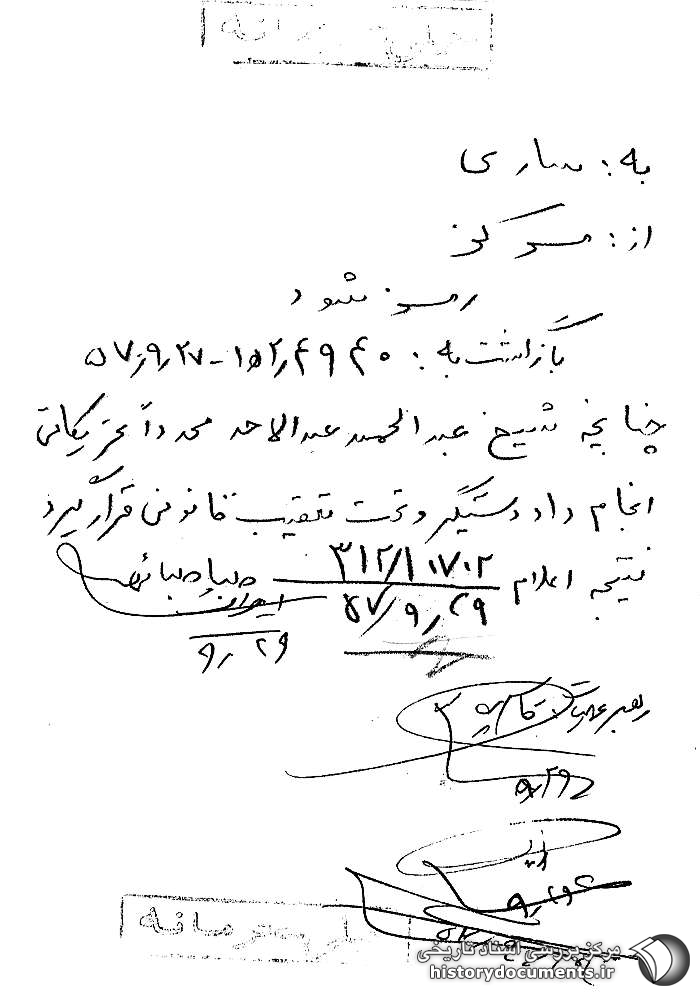 خیلی محرمانه
به: ساری
از: مرکز
رمز شود
بازگشت به: ۱۵۲٫۴۹۴۰-۵۷٫۹٫۲۷
چنانچه شیخ عبدالحمید عبدالاحد مجدداً تحریکاتی
انجام داد دستگیر و تحت تعقیب قانونی قرار گیرد
نتیجه اعلام ۳۱۲/۱۰۷۰۲
۵۷/۹٫۲۹
۹٫۲۹
رهبر عملیات
۹٫۲۹
خیلی محرمانه
مرکز بررسی اسناد تاریخی
historydocuments.ir